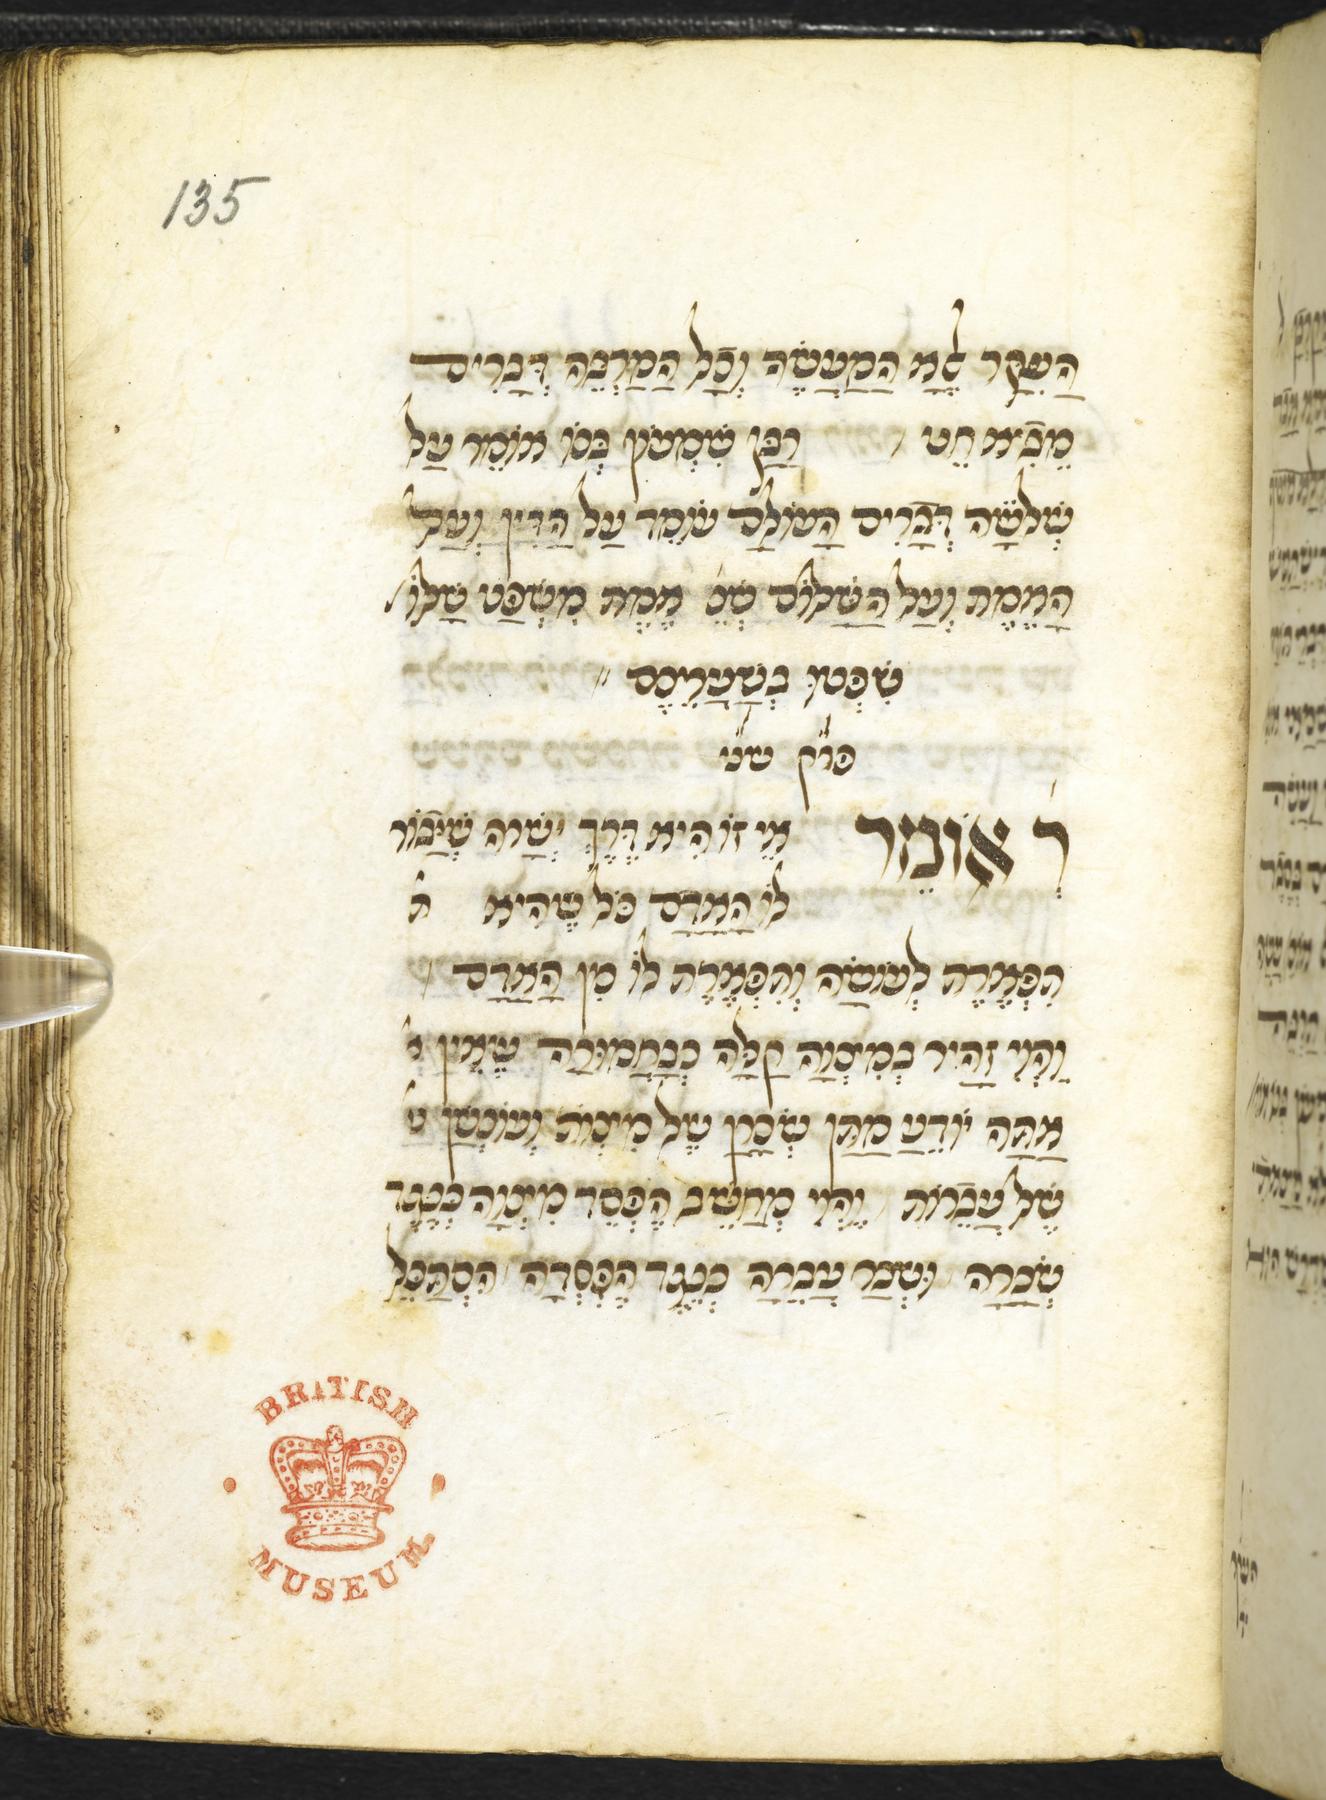 135
הַעִקָּר לֶא הַמַּעֲשֶׂה וְכָל הַמַּרְבֶּה דְּבָרִים
מֵבִיא חֵט רַבָּן שִׁמְעוֹן בְּסוֹ אוֹמֵר עַל
שְׁלֹשָׁה דְּבָרִים הָעוֹלָם עוֹמֵד עַל הַדִּין וְעַל
הָאֱמֶת וְעַל הַשָּׁלוֹם שְׁנֵ אֱמֶת מִשְׁפַּט שָׁלוֹ
שִׁפְטוּ בְּשַׁעֲרֵיכֶם
פרק שני
ר אוֹמֵר אֵי זוֹ הִיא דֶּרֶךְ יְשָׁרָה שֶׁיָּבוֹר
לוֹ הָאָדָם כֹּל שֶׁהִיא ת
תִּפְאֶרֶת לְעוֹשֶׂהָ וְתִפְאֶרֶת לוֹ מִן הָאָדָם
וֶהֱוֵי זָהִיר בְּמִצְוָה קַלָּה כְּבַחֲמוּרָה שֶׁאֵין א
אַתָּה יוֹדֵעַ מַתַּן שְׂכָרָן שֶׁל מִצְוֹת וְעוֹנְשָׁן ש
שֶׁל עֲבֵרוֹת וֶהֱוֵי מְחַשֵּׁב הֶפְסֵד מִצְוָה כְּנֶגֶד
שְׂכָרָהּ וּשְׂכַר עֲבֵרָה כְּנֶגֶד הֶפְסֵדָהּ הִסְתַּכֵּל
BRITISH
MUSEUM